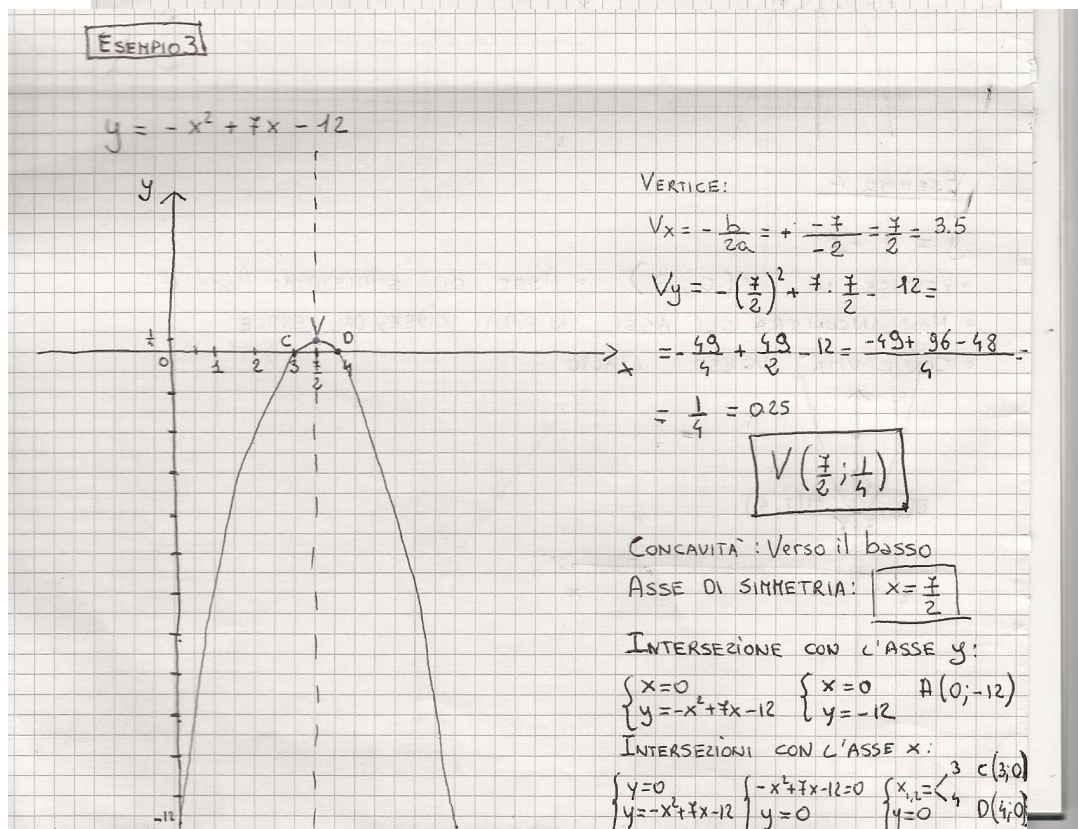 ESEMPIO 3
y = - x² + 7x - 12
y
1/4
C
V
D
x
0
1
2
3
7/2
4
-12
VERTICE:
Vx = - b/2a = + -7/-2 = 7/2 = 3.5
Vy = -(7/2)² + 7 · 7/2 - 12 =
= - 49/4 + 49/2 - 12 = -49 + 96 - 48/4 =
= 1/4 = 0.25
V (7/2 ; 1/4)
CONCAVITÀ : Verso il basso
ASSE DI SIMMETRIA: x = 7/2
INTERSEZIONE CON L'ASSE y:
{ x=0 { x=0 A (0;-12)
{ y=-x²+7x-12 { y=-12
INTERSEZIONI CON L'ASSE x:
{ y=0 { -x²+7x-12=0 { x1,2 = < 3 C(3;0)
{ y=-x²+7x-12 { y=0 { y=0 4 D(4;0)